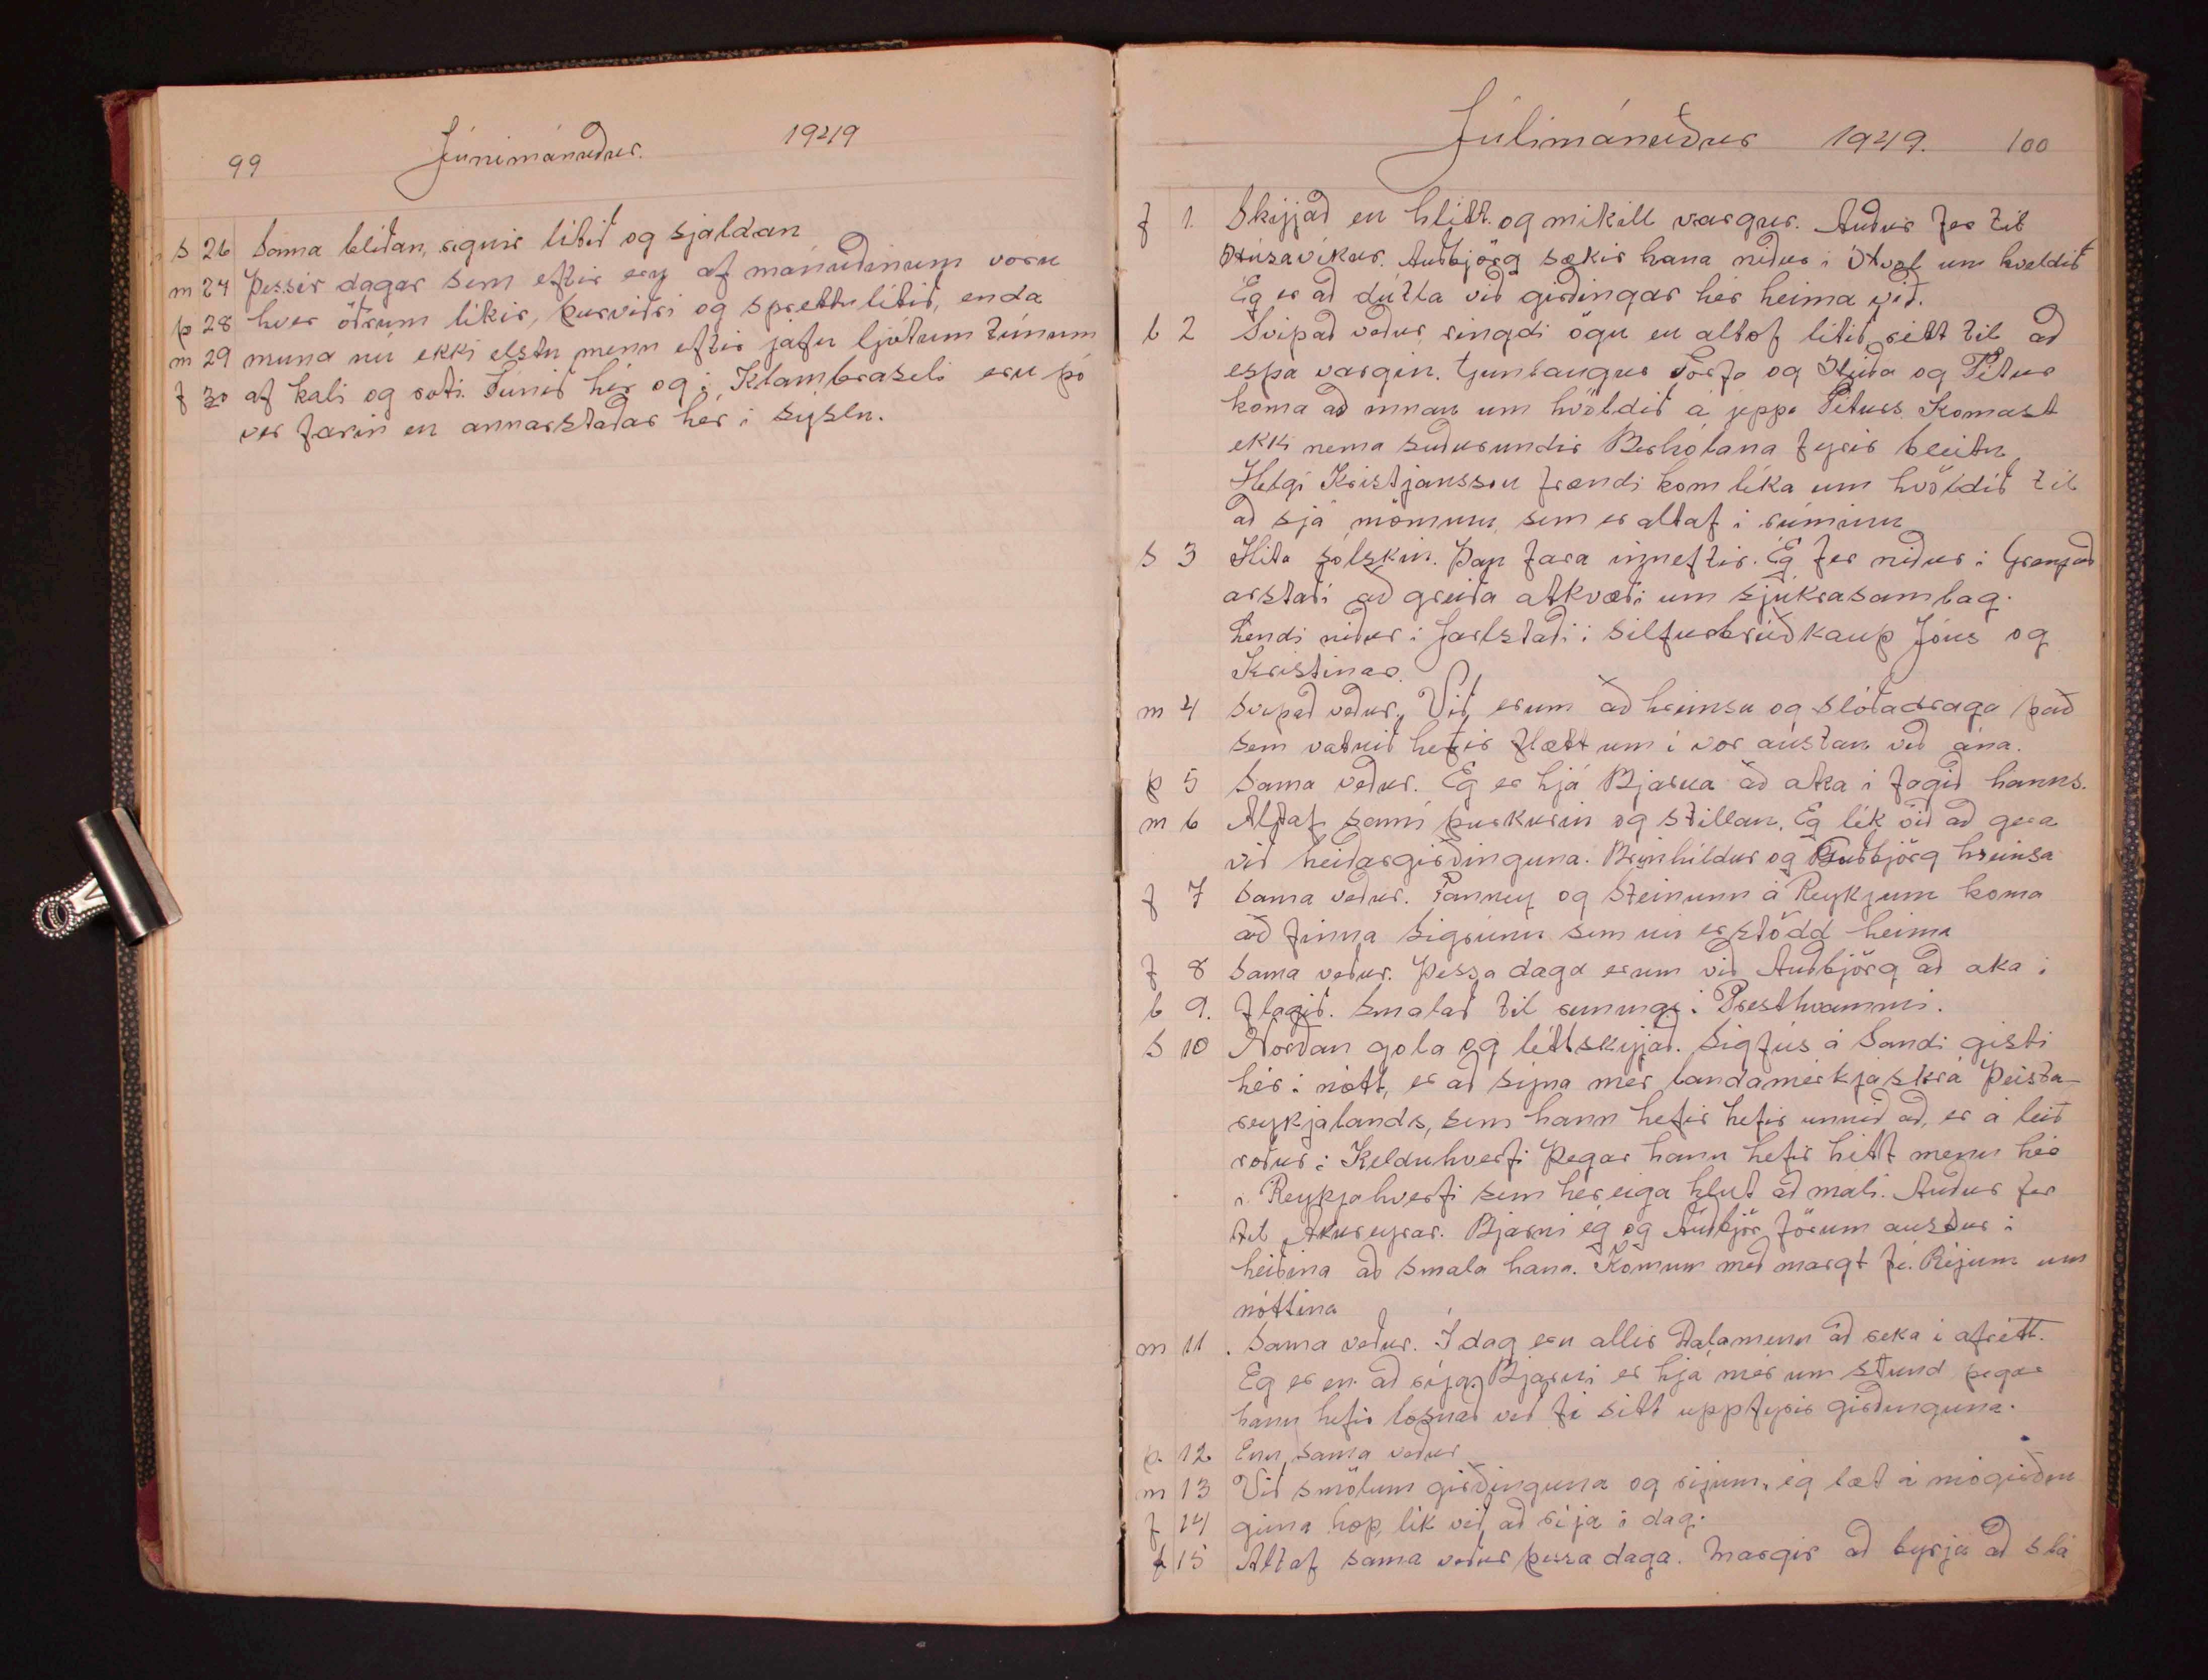 99 Júnimánuður. 1949
s 26 Sama blíðan, rignir lítið og sjaldan
m 27 Þessir dagar sem eftir eru af mánuðinum voru
þ 28 hver öðrum líkir, þurviðri og sprettulítið, enda
m 29 muna nú ekki elstu menn eftir jafn ljótum túnum
f 30 af kali og roti. Túnið hér og í Klambraseli eru þó
ver farin en annarstaðar hér í sýslu.
Júlímánuður 1949. 100
f 1. Skýjað en hlítt og mikill vargur. Auður fer til
Húsavíkur. Auðbjörg sækir hana niður í Hvol um kveldið
Ég er að dútla við girðingar hér heima við.
l 2 Svipað veður, ringdi ögn en altof lítið rétt til að
espa vargin. Gunlaugur Torfa og Hlíða og Pétur
koma að innan um kvöldið á jeppa Péturs. Komast
ekki nema suðurundir Berhólana fyrir bleitu
Helgi Kristjánsson frændi kom líka um kvöldið til
að sjá mömmu, sem er altaf í rúminu
s 3 Hita sólskin. Þau fara inneftir. Ég fer niður í Grenjað
arstaði að greiða atkvæði um sjúkrasamlag.
Lendi niður í Jarlstaði í silfurbrúðkaup Jóns og
Kristínar.
m 4 Svipað veður. Við erum að hreinsa og slóðadraga það
sem vatnið hefir flætt um í vor austan við ána.
þ 5 Sama veður. Ég er hjá Bjarna að aka í flagið hanns.
m 6 Altaf sami þurkurin og stillan. Ég lík við að gera
við heiðargirðinguna. Brinhildur og Auðbjörg hreinsa
f 7 Sama veður. Fanney og Steinunn á Reykjum koma
að finna Sigrúnu sem nú er stödd heima
f 8 Sama veður. Þessa daga erum við Auðbjörg að aka í
l 9. flagið. Smalað til rúnings í Presthvammi.
s 10 Norðan gola og léttskýjað. Sigfús á Sandi gisti
hér í nótt, er að sýna mér landamerkjaskrá Þeista-
reykjalands, sem hann hefir hefir unnið að, er á leið
norður í Kelduhverfi þegar hann hefir hitt menn hér
í Reykjahverfi sem hér eiga hlut að máli. Auður fer
til Akureyrar. Bjarni ég og Auðbjör förum austur í
heiðina að smala hana. Komum með margt fé. Ríjum um
nóttina
m 11. Sama veður. Í dag eru allir Dalamenn að reka í afrétt.
Ég er en að ríja, Bjarni er hjá mér um stund þegar
hann hefir losnað við fé sitt uppfyrir girðinguna.
þ. 12 Enn sama veður
m 13 Við smölum girðinguna og ríjum, ég læt á
f 14 gima hóp, lík við að ríja í dag.
f 15 Altaf sama veður þessa daga. Margir að byrja að slá